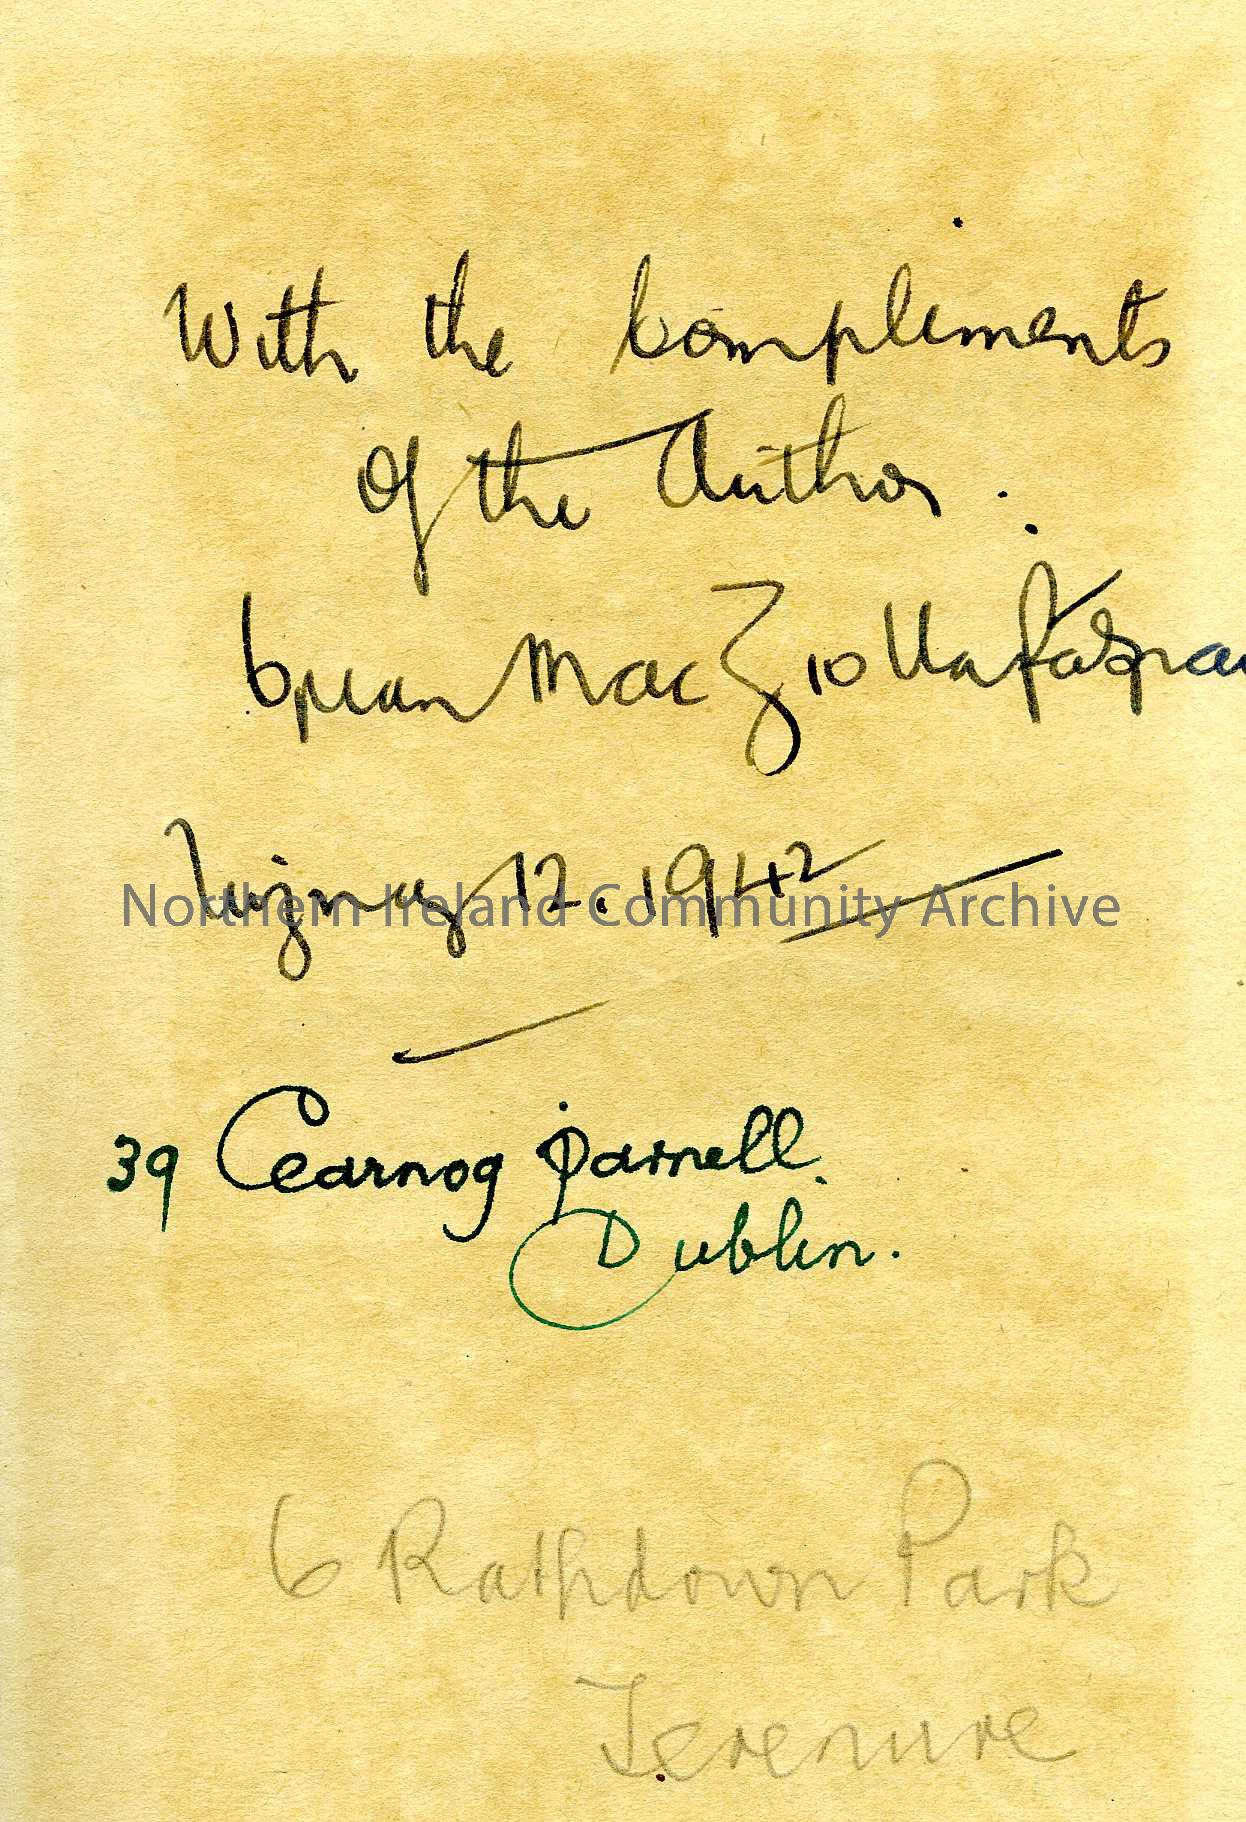 With the Compliments
Of the Author.
Brian Mac Giolla Ṗádra
12. 1942
Northern Ireland Community Archive
39 Cearnog Ṗarnell.
Dublin.
6 Rathdown Park
Terenure